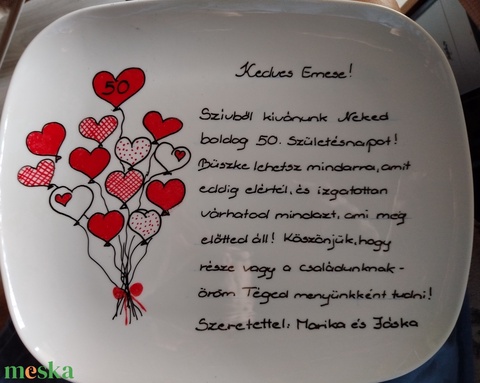 50
Kedves Emese!
Szívből kívánunk Neked
boldog 50. Születésnapot!
Büszke lehetsz mindarra, amit
eddig elértél, és izgatottan
várhatod mindazt, ami még
előtted áll! Köszönjük, hogy
része vagy a családunknak -
öröm Téged menyünkként tudni!
Szeretettel: Marika és Jóska
meska